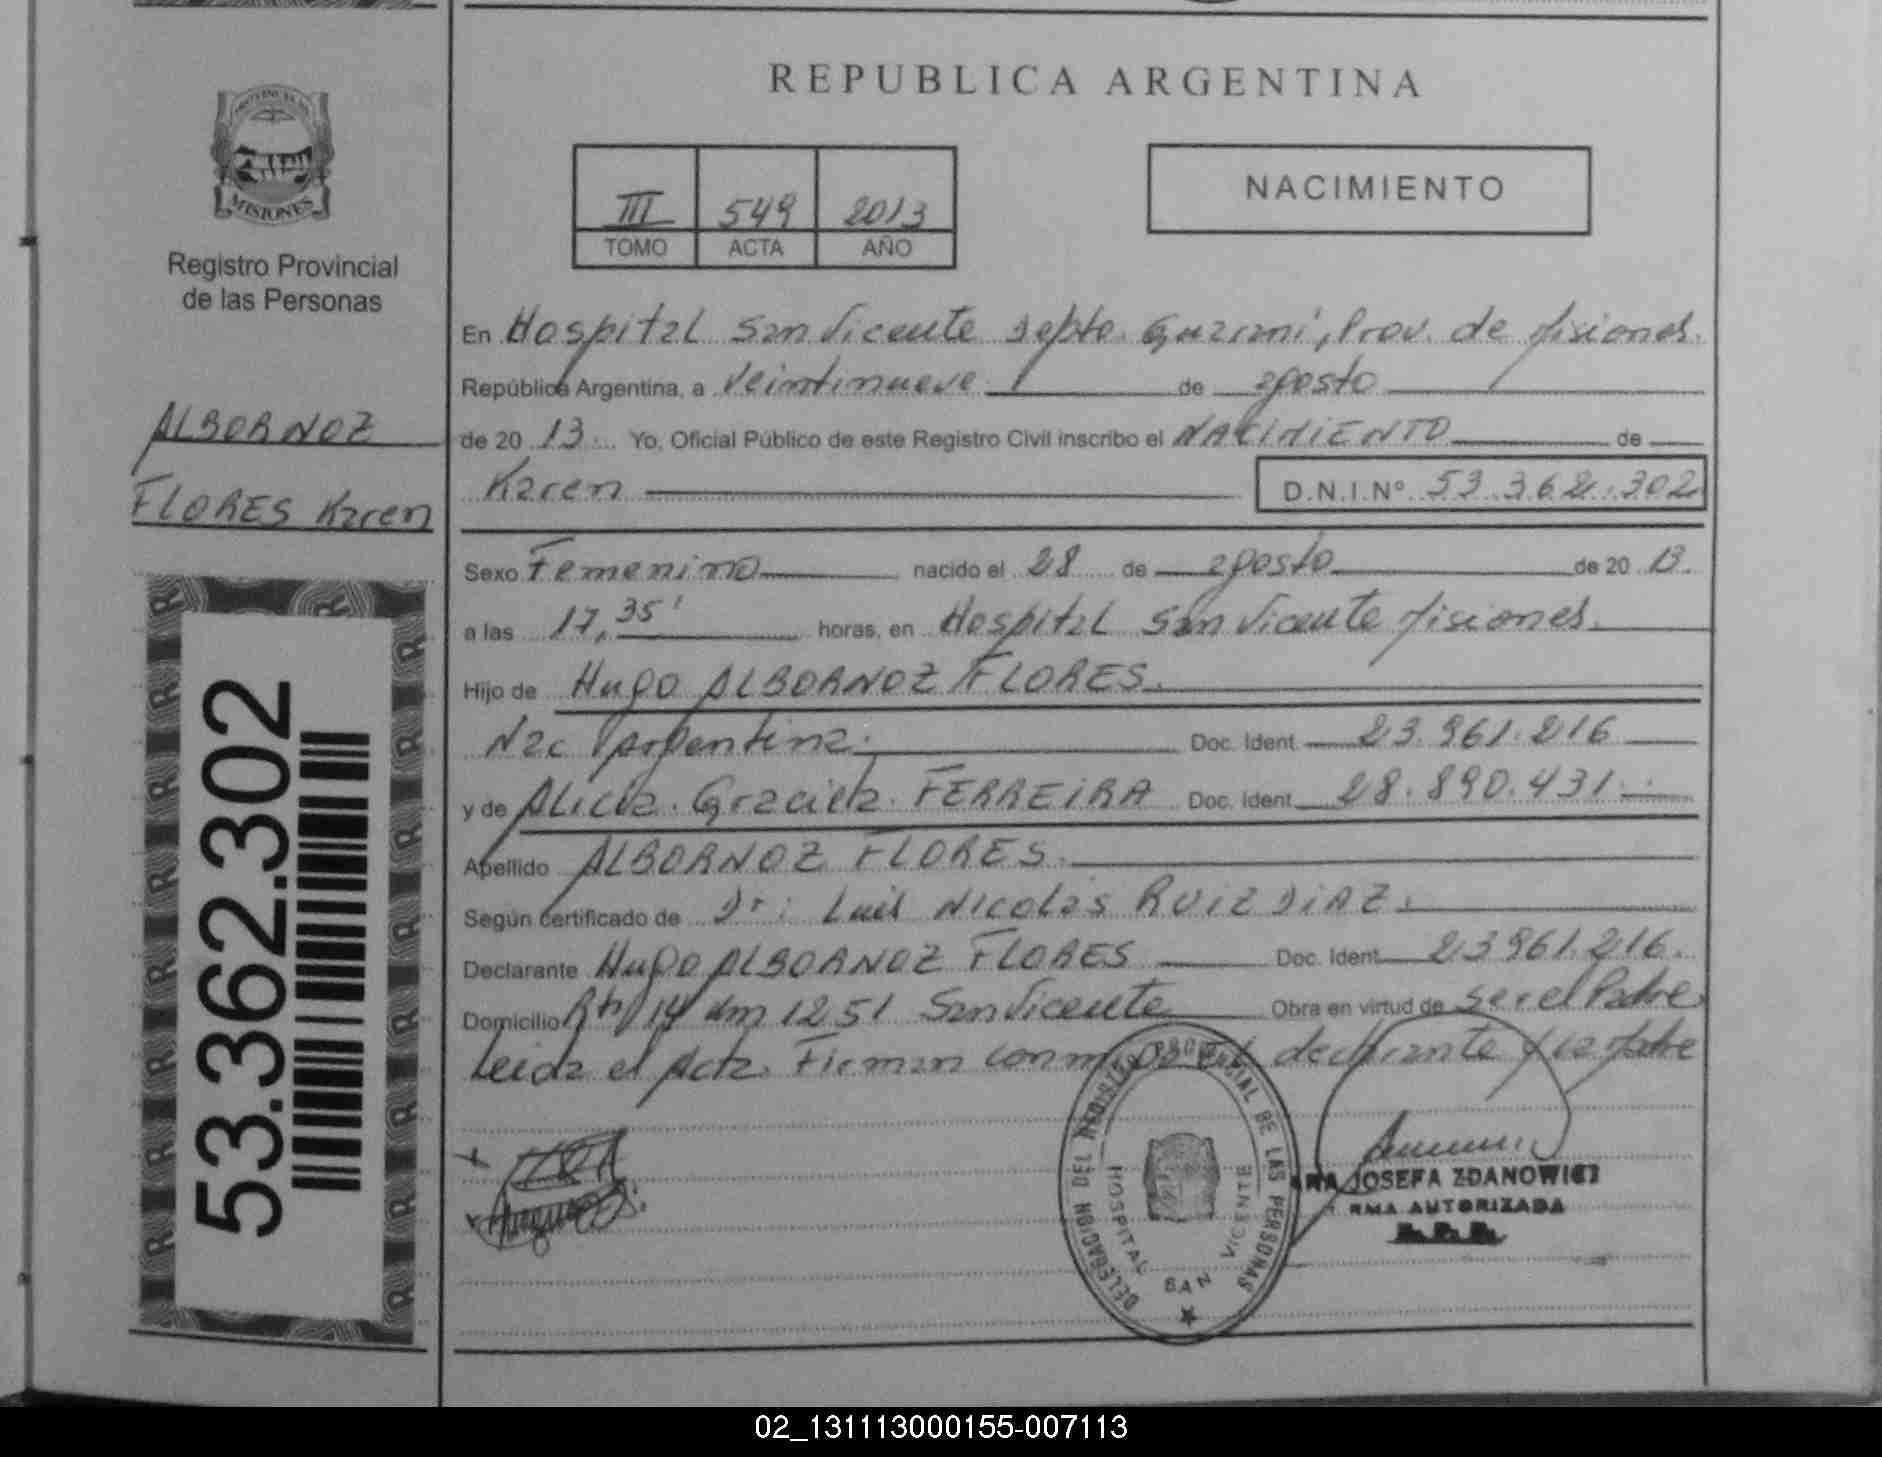 REPUBLICA ARGENTINA
PROVINCIA DE
MISIONES
Registro Provincial
de las Personas
III 549 2013
TOMO ACTA AÑO
NACIMIENTO
ALBORNOZ
FLORES Karen
53.362.302
En Hospital San Vicente Depto. Guarani, Prov. de Misiones.
República Argentina, a Veintinueve de agosto
de 20 13 Yo, Oficial Público de este Registro Civil inscribo el NACIMIENTO de
Karen D.N.I.Nº 53.362.302
Sexo Femenino nacido el 28 de agosto de 20 13.
a las 17,35' horas, en Hospital San Vicente Misiones.
Hijo de Hugo ALBORNOZ FLORES.
Nac Argentina. Doc. Ident. 23.961.216
y de Alicia Graciela FERREIRA Doc. Ident. 28.890.431
Apellido ALBORNOZ FLORES.
Según certificado de Dr: Luis Nicolás RUIZ DIAZ.
Declarante Hugo ALBORNOZ FLORES Doc. Ident. 23961.216.
Domicilio Rta 14 km 1251 San Vicente Obra en virtud de ser el Padre
Leida el Acta. Firman conmigo el declarante y la Madre
DELEGACION DEL REGISTRO PROVINCIAL DE LAS PERSONAS
HOSPITAL SAN VICENTE
JOSEFA ZDANOWICZ
AUTORIZADA
R.P.P.
02_131113000155-007113